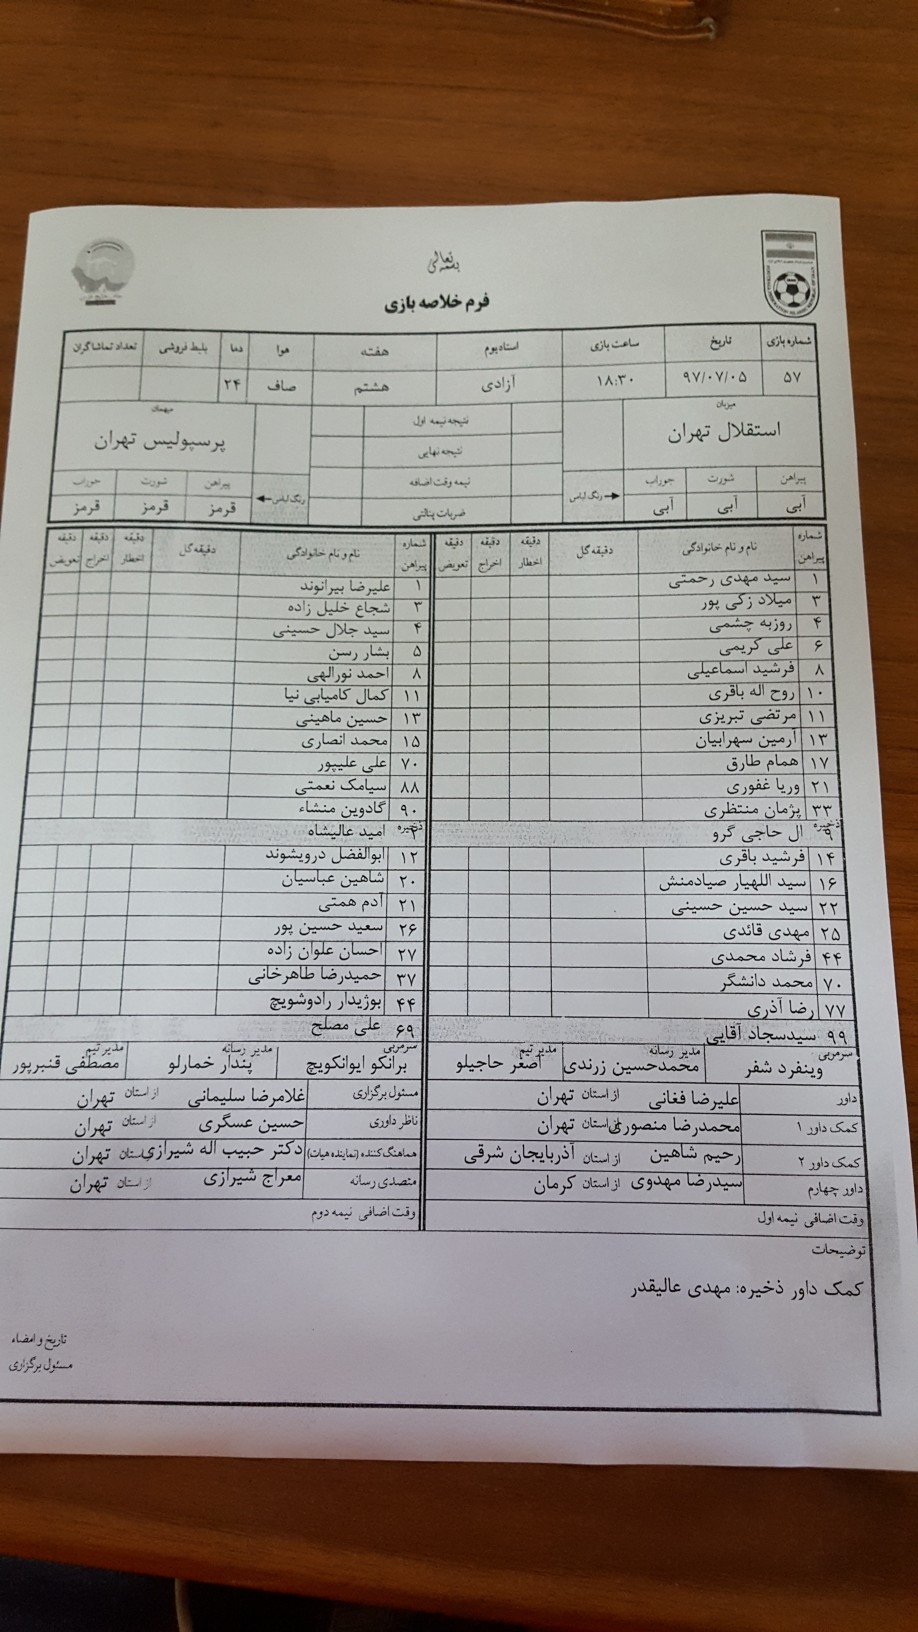 بسمه تعالی
فرم خلاصه بازی
شماره بازی تاریخ ساعت بازی استادیوم هفته هوا دما بلیط فروشی تعداد تماشاگران
۵۷ ۹۷/۰۷/۰۵ ۱۸:۳۰ آزادی هشتم صاف ۲۴
میزبان
استقلال تهران
پیراهن شورت جوراب
آبی آبی آبی
رنگ لباس
نتیجه نیمه اول
نتیجه نهایی
نیمه وقت اضافه
ضربات پنالتی
میهمان
پرسپولیس تهران
رنگ لباس
پیراهن شورت جوراب
قرمز قرمز قرمز
شماره پیراهن نام و نام خانوادگی دقیقه گل دقیقه اخطار دقیقه اخراج دقیقه تعویض
۱ سید مهدی رحمتی
۳ میلاد زکی پور
۴ روزبه چشمی
۶ علی کریمی
۸ فرشید اسماعیلی
۱۰ روح اله باقری
۱۱ مرتضی تبریزی
۱۳ آرمین سهرابیان
۱۷ همام طارق
۲۱ وریا غفوری
۳۳ پژمان منتظری
ذخیره
۹ ال حاجی گرو
۱۴ فرشید باقری
۱۶ سید اللهیار صیادمنش
۲۲ سید حسین حسینی
۲۵ مهدی قائدی
۴۴ فرشاد محمدی
۷۰ محمد دانشگر
۷۷ رضا آذری
۹۹ سیدسجاد آقایی
سرمربی وینفرد شفر مدیر رسانه محمدحسین زرندی مدیر تیم اصغر حاجیلو
شماره پیراهن نام و نام خانوادگی دقیقه گل دقیقه اخطار دقیقه اخراج دقیقه تعویض
۱ علیرضا بیرانوند
۳ شجاع خلیل زاده
۴ سید جلال حسینی
۵ بشار رسن
۸ احمد نورالهی
۱۱ کمال کامیابی نیا
۱۳ حسین ماهینی
۱۵ محمد انصاری
۷۰ علی علیپور
۸۸ سیامک نعمتی
۹۰ گادوین منشاء
ذخیره
۲ امید عالیشاه
۱۲ ابوالفضل درویشوند
۲۰ شاهین عباسیان
۲۱ آدم همتی
۲۶ سعید حسین پور
۲۷ احسان علوان زاده
۳۷ حمیدرضا طاهرخانی
۴۴ بوژیدار رادوشویچ
۶۹ علی مصلح
سرمربی برانکو ایوانکویچ مدیر رسانه پندار خمارلو مدیر تیم مصطفی قنبرپور
داور علیرضا فغانی از استان تهران
کمک داور ۱ محمدرضا منصوری از استان تهران
کمک داور ۲ رحیم شاهین از استان آذربایجان شرقی
داور چهارم سیدرضا مهدوی از استان کرمان
وقت اضافی نیمه اول
مسئول برگزاری غلامرضا سلیمانی از استان تهران
ناظر داوری حسین عسگری از استان تهران
هماهنگ کننده (نماینده هیات) دکتر حبیب اله شیرازی از استان تهران
متصدی رسانه معراج شیرازی از استان تهران
وقت اضافی نیمه دوم
توضیحات
کمک داور ذخیره: مهدی عالیقدر
تاریخ و امضاء
مسئول برگزاری